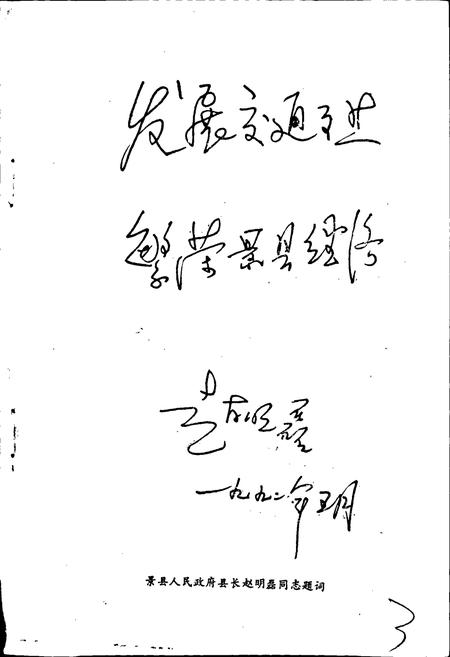 发展交通事业
繁荣景县经济
赵明磊
一九九二年五月
景县人民政府县长赵明磊同志题词
3